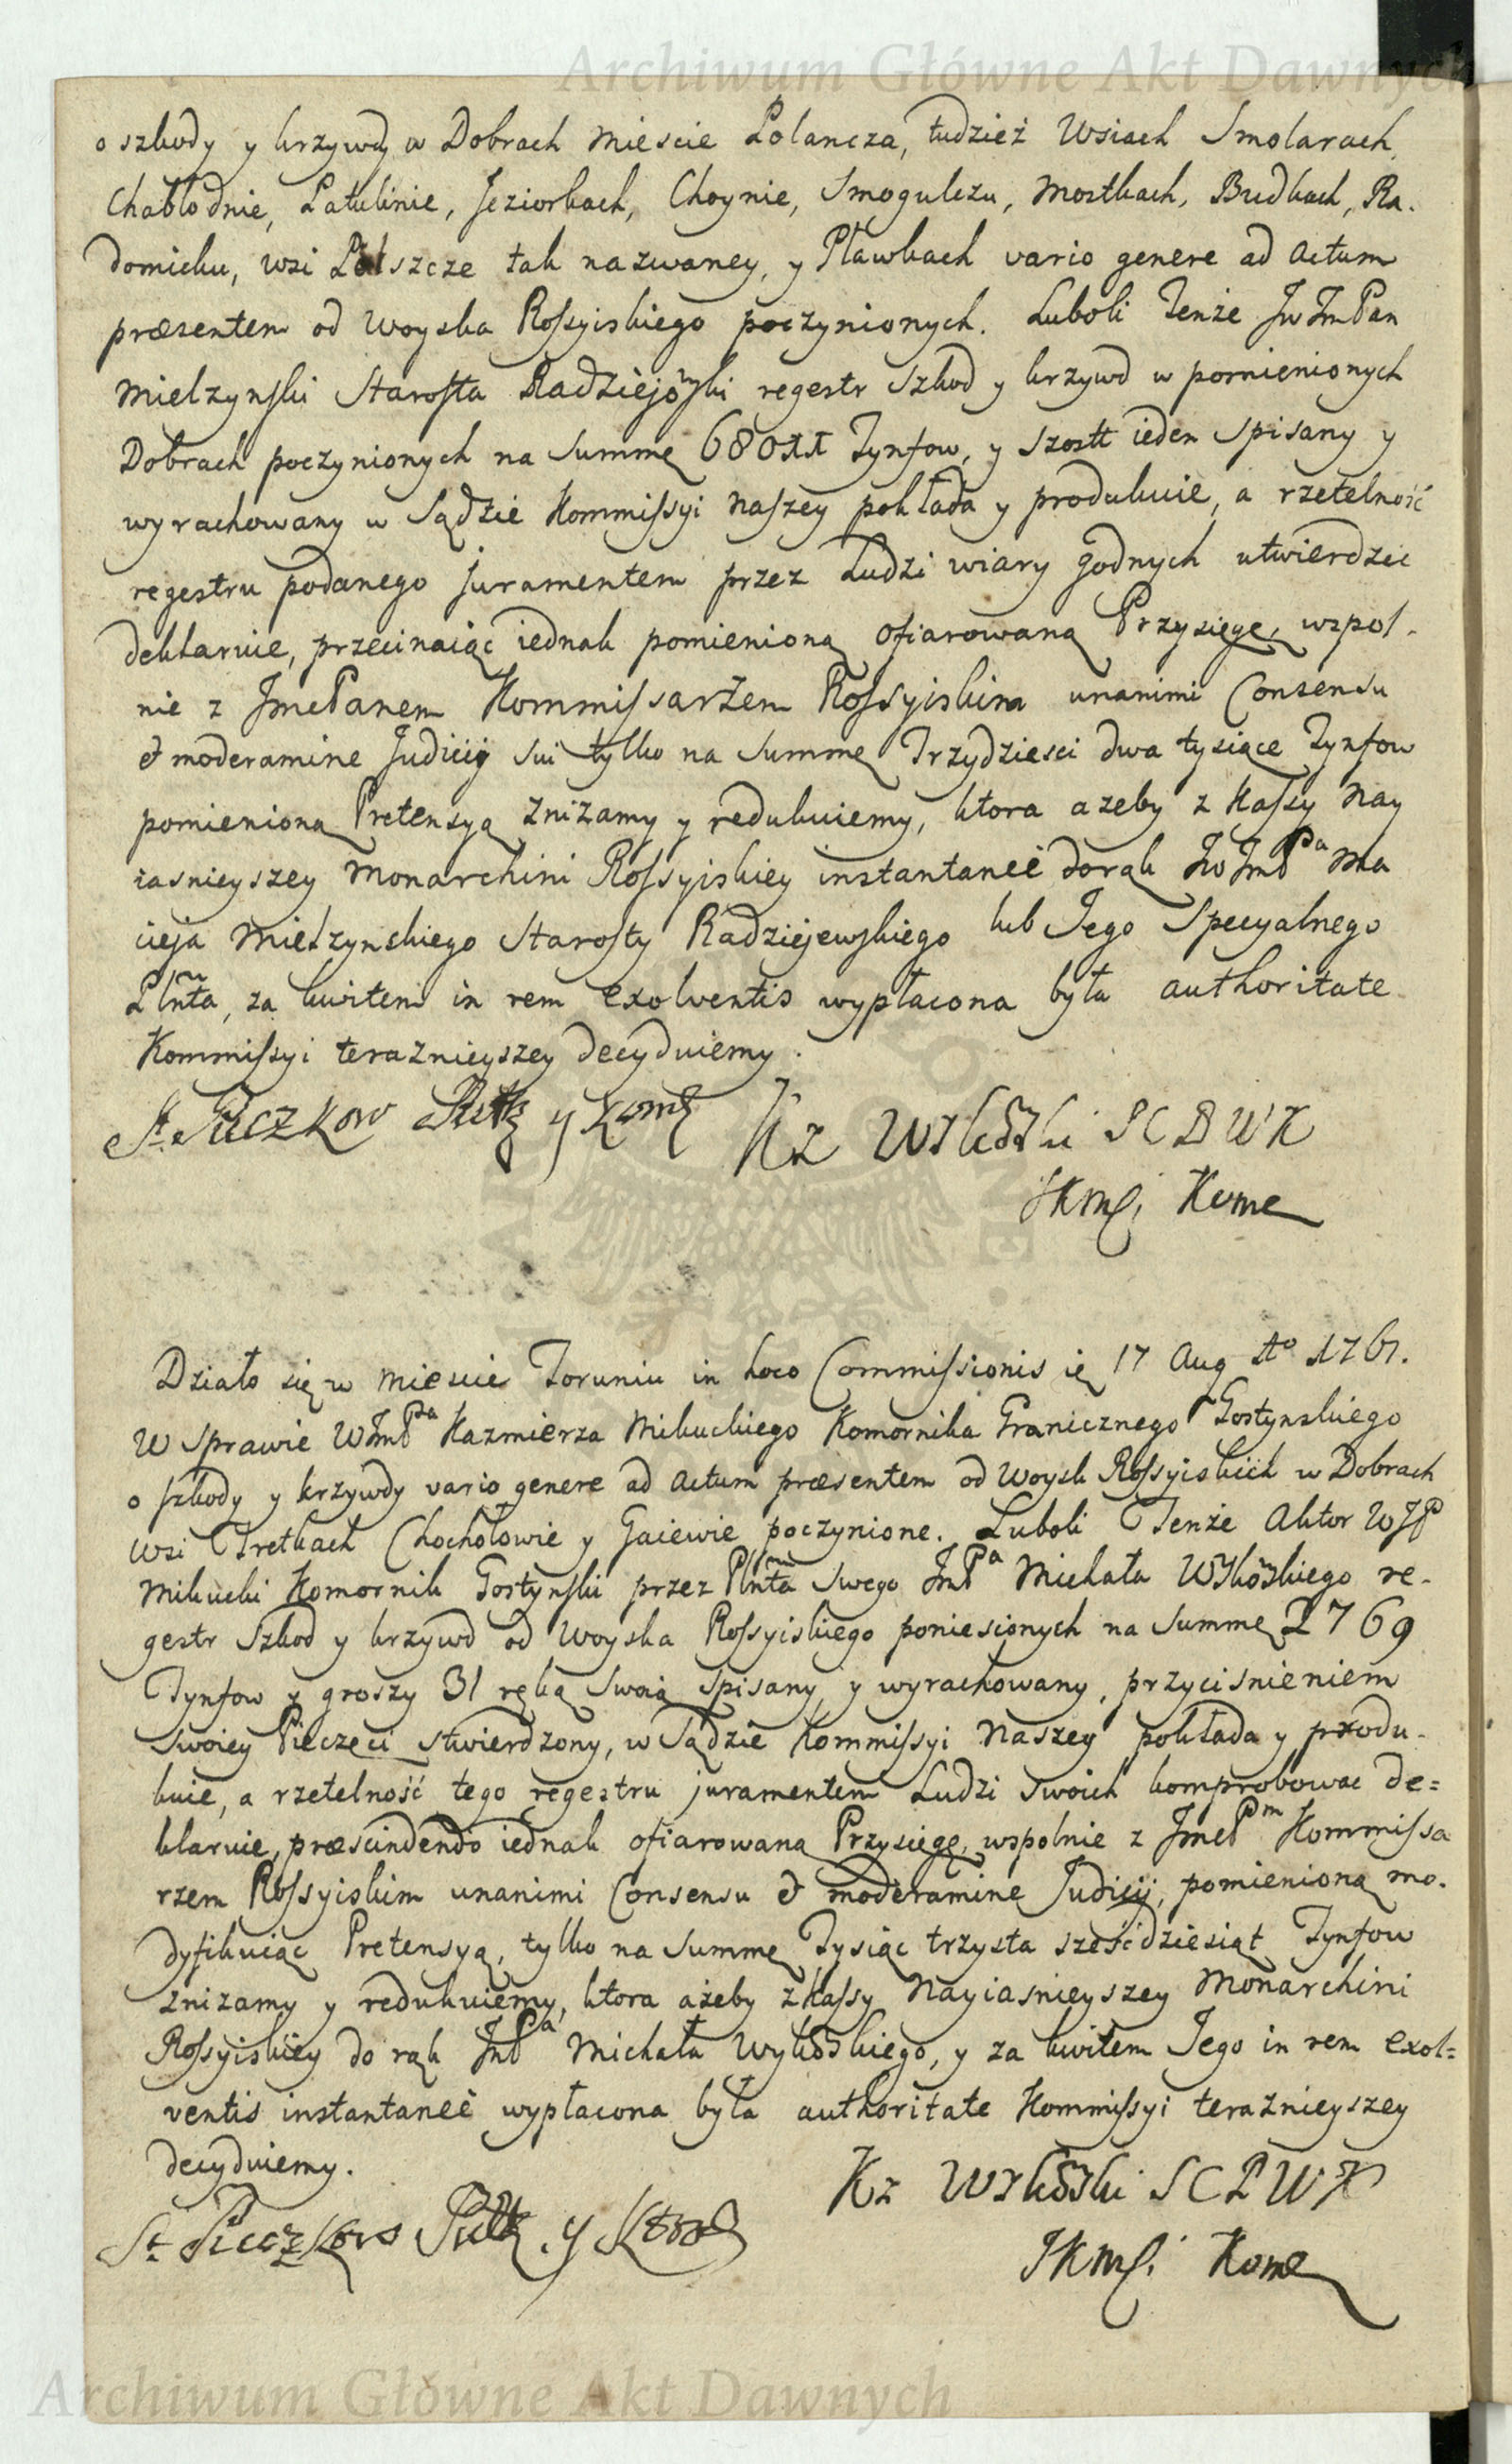 Archiwum Główne Akt Dawnych
o szkody y krzywdy w Dobrach Miescie Lolancza, tudzież Wsiach Smolarach
Chabłodnie, Latulinie, Jeziorkach, Choynie, Smogulczu, Mostkach, Budkach, Ra-
domicku, wsi Polszcze tak nazwaney, y Pławkach vario genere ad actum
præsentem od Woyska Rossyiskiego poczynionych. Luboli Tenże JWJmPan
Mielzynski Starosta Radziejoski regestr szkod y krzywd w pomienionych
Dobrach poczynionych na summę 680 Tynfow, y szostt ieden spisany y
wyrachowany w Sądzie Kommissyi Naszey pokłada y produkuie, a rzetelność
regestru podanego juramentem przez Ludzi wiary godnych utwierdzic
deklaruie, przecinaiąc iednak pomienioną ofiarowaną Przysięgę, wspol-
nie z JmcPanem Kommissarzem Rossyiskim unanimi Consensu
& moderamine Judicij sui tylko na Summę Trzydziesci dwa tysiące Tynfow
pomienioną Pretensyą zniżamy y redukuiemy, ktora ażeby z Kassy Nay
iasnieyszey Monarchini Rossyiskiey instantaneè dorąk JWJmPa Ma
cieja Mielzynskiego Starosty Radziejewskiego lub Jego Specyalnego
Plnta, za kwitem in rem exolventis wypłacona była authoritate
Kommissyi teraznieyszey decyduiemy.
St. Puczkow Pułk y Kom
Kz Wykoski SCBWK
JKMsi Kome
Działo się w miescie Toruniu in loco Commissionis ie 17 Aug Ao 1767.
W Sprawie WJmPa Kazmierza Mikuckiego Komornika Granicznego Gostynskiego
o szkody y krzywdy vario genere ad actum præsentem od Woysk Rossyiskich w Dobrach
wsi Tretkach Chochołowie y Gaiewie poczynione. Luboli Tenże Aktor WJP
Mikucki Komornik Gostynski przez Plnta Swego JmPa Michała Wykoskiego re-
gestr Szkod y krzywd od Woyska Rossyiskiego poniesionych na Summę 2769
Tynfow y groszy 31 ręką Swoią spisany y wyrachowany, przycisnieniem
Swoiey Pieczęci stwierdzony, w Sądzie Kommissyi Naszey pokłada y produ-
kuie, a rzetelność tego regestru juramentem Ludzi Swoich komprobowac de=
klaruie, præscindendo iednak ofiarowaną Przysięgę, wspolnie z JmcPm Kommissa
rzem Rossyiskim unanimi Consensu & moderamine Judicij, pomienioną mo-
dyfikuiąc Pretensyą, tylko na Summę Tysiąc trzysta sześćdziesiąt Tynfow
zniżamy y redukuiemy, ktora ażeby z Kassy Nayiasnieyszey Monarchini
Rossyiskiey do rąk JmPa Michała Wykoskiego, y za kwitem Jego in rem exol=
ventis instantaneè wypłacona była authoritate Kommissyi teraznieyszey
decyduiemy.
St. Puczkow Pułk. y Kom
Kz Wykoski SCBWK
JKMsi Kome
Archiwum Główne Akt Dawnych